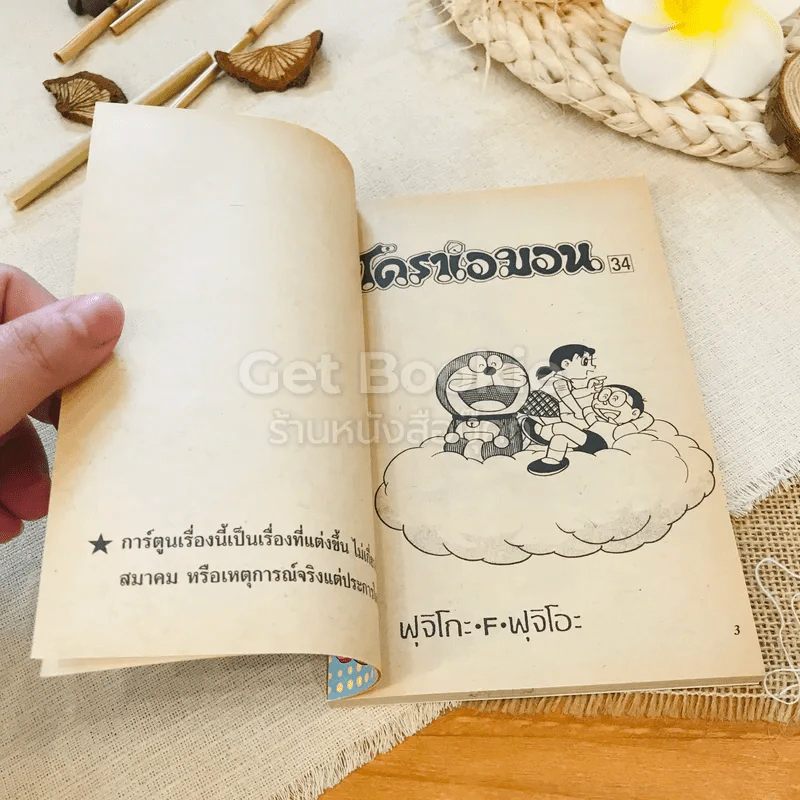 โดราเอมอน 34
Get Bookie
ร้านหนังสือ
★ การ์ตูนเรื่องนี้เป็นเรื่องที่แต่งขึ้น
สมาคม หรือเหตุการณ์จริงแต่ประการ
ฟุจิโกะ•F•ฟุจิโอะ
3